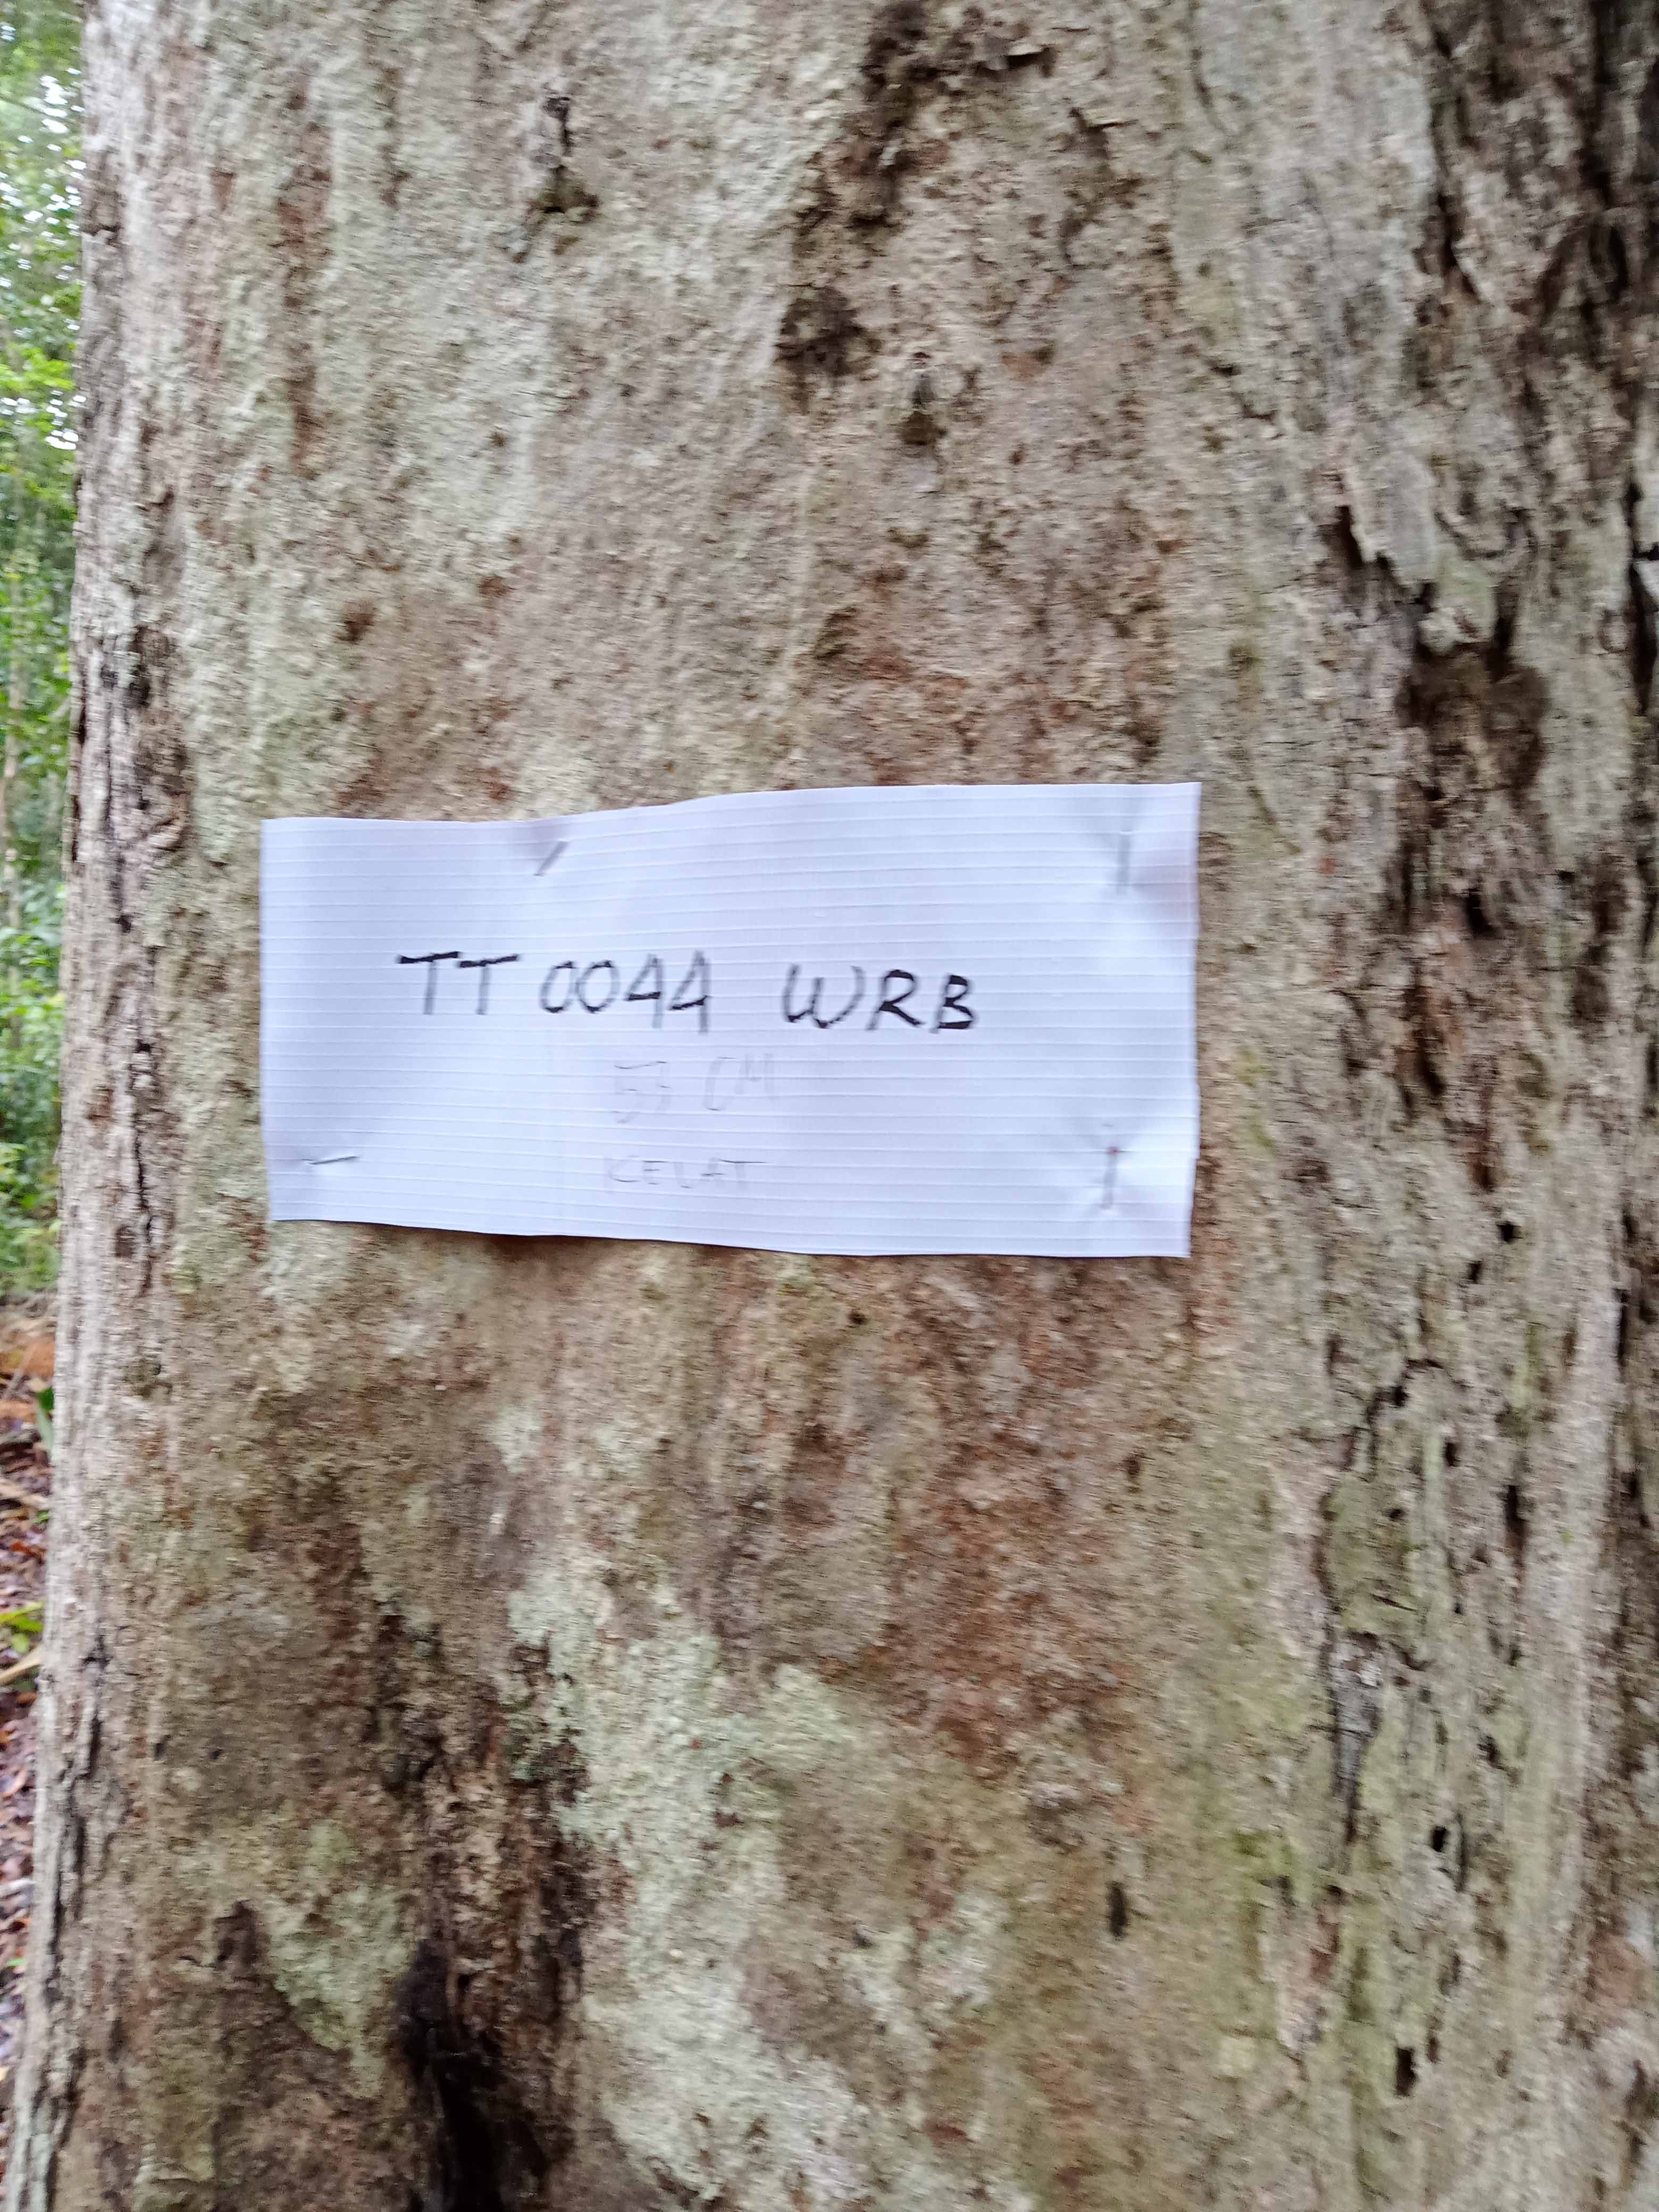 TT 0044 WRB
53 CM
KELAT